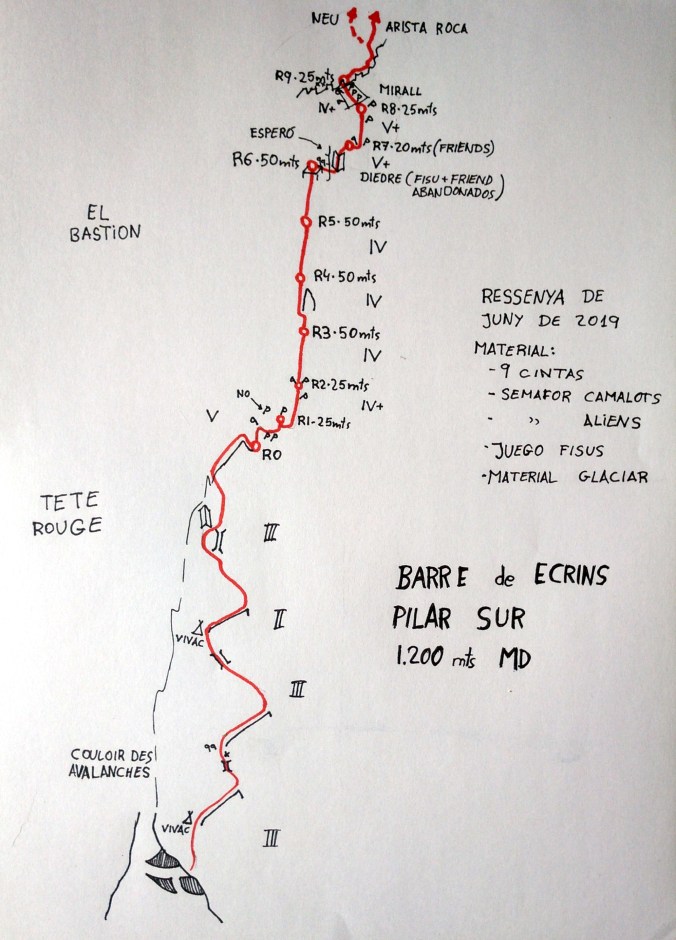 NEU
ARISTA ROCA
R9·25mts
MIRALL
IV+
R8·25mts
V+
ESPERÓ
R7·20mts (FRIENDS)
R6·50mts
V+
DIEDRE (FISU + FRIEND
ABANDONADOS)
EL
BASTION
R5·50mts
IV
R4·50mts
IV
R3·50mts
IV
R2·25mts
IV+
NO
R1·25mts
V
R0
RESSENYA DE
JUNY DE 2019
MATERIAL:
- 9 CINTAS
- SEMAFOR CAMALOTS
- " ALIENS
· JUEGO FISUS
· MATERIAL GLACIAR
TETE
ROUGE
III
BARRE de ECRINS
PILAR SUR
1.200 mts MD
II
VIVAC
III
COULOIR DES
AVALANCHES
VIVAC
III